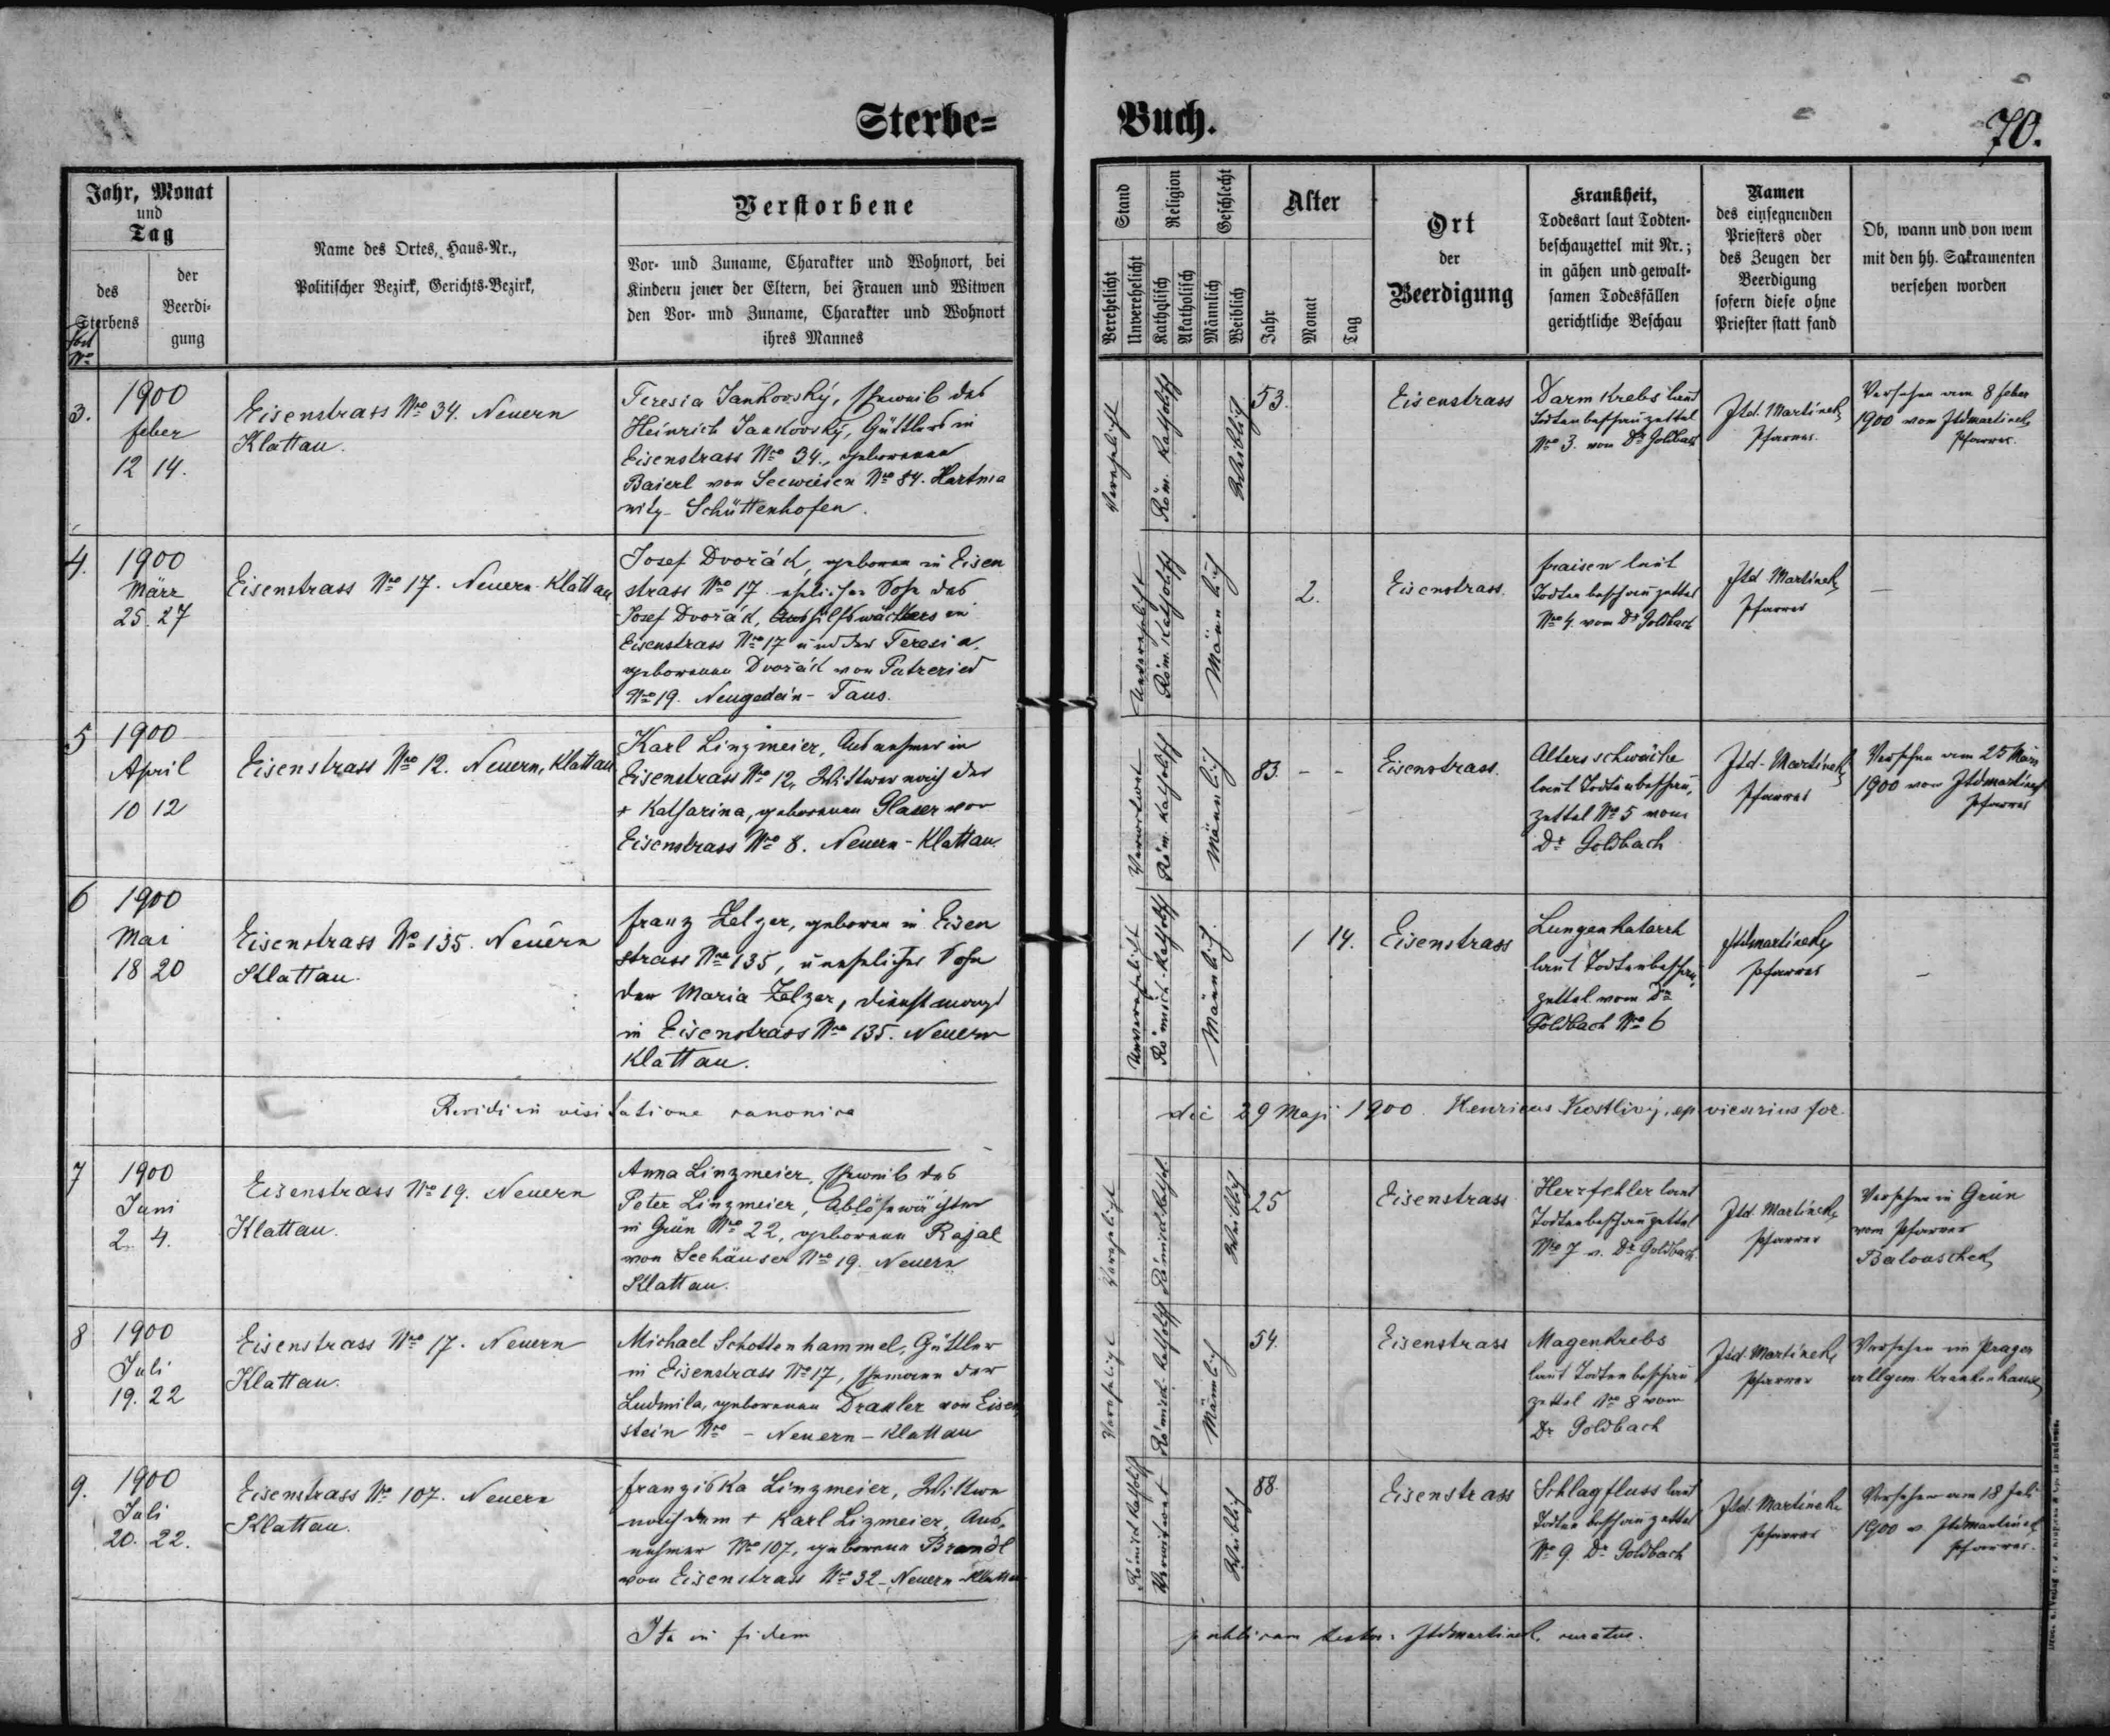 Sterbe=
Buch.
70.
Jahr, Monat
und
Tag
des
Sterbens
der
Beerdi-
gung
Name des Ortes, Haus-Nr.,
Politischer Bezirk, Gerichts-Bezirk,
Verstorbene
Vor- und Zuname, Charakter und Wohnort, bei
Kindern jener der Eltern, bei Frauen und Witwen
den Vor- und Zuname, Charakter und Wohnort
ihres Mannes
Stand
Religion
Geschlecht
Alter
Verehelicht
Unverehelicht
Katholisch
Akatholisch
Männlich
Weiblich
Jahr
Monat
Tag
Ort
der
Beerdigung
Krankheit,
Todesart laut Todten-
beschauzettel mit Nr.;
in gähen und gewalt-
samen Todesfällen
gerichtliche Beschau
Namen
des einsegnenden
Priesters oder
des Zeugen der
Beerdigung
sofern diese ohne
Priester statt fand
Ob, wann und von wem
mit den hh. Sakramenten
versehen worden
3.
1900
Feber
12 14.
Eisenstrass Nro 34. Neuern
Klattau.
Teresia Jankovský, Eheweib des
Heinrich Jankovský, Gütlers in
Eisenstrass Nro 34., geborenen
Baierl von Seewiesen Nro 84. Hartma
nitz - Schüttenhofen.
Verehelicht
Röm. Katholisch
Weiblich
53.
Eisenstrass
Darm Krebs laut
Todtenbeschauzettel
Nro 3. vom Dr Goldbach
Jtd. Martinek
Pfarrer.
Versehen am 8 Feber
1900 von Jtdmartinek
Pfarrer.
4.
1900
März
25. 27
Eisenstrass Nro 17. Neuern-Klattau
Josef Dvořák, geboren in Eisen
strass Nro 17 ehelicher Sohn des
Josef Dvořák, Aushilfswächters in
Eisenstrass Nro 17 und der Teresia,
geborenen Dvořák von Putzeried
Nro 19. Neugedein - Taus.
Unverehelicht
Röm. Katholisch
Männlich
2.
Eisenstrass.
Fraisen laut
Todtenbeschauzettel
Nro 4. vom Dr Goldbach
Jtd Martinek
Pfarrer
—
5
1900
April
10 12
Eisenstrass Nro 12. Neuern, Klattau
Karl Linzmeier, Ausnehmer in
Eisenstrass Nro 12, Wittwer nach der
+ Katharina, geborenen Glaser von
Eisenstrass Nro 8. Neuern - Klattau.
Verwitwet
Röm. Katholisch
Männlich
83. - -
Eisenstrass.
Altersschwäche
laut Todtenbeschau,
zettel Nro 5 vom
Dr Goldbach
Jtd-Martinek
Pfarrer
Versehen am 25 März
1900 von Jtdmartinek
Pfarrer
6
1900
Mai
18 20
Eisenstrass Nro 135. Neuern
Klattau.
Franz Zelzer, geboren in Eisen
strass Nro 135, unehelicher Sohn
der Maria Zelzer, Dienstmagd
in Eisenstrass Nro 135. Neuern
Klattau.
Unverehelicht
Römisch-Katholisch
Männlich.
1 14.
Eisenstrass
Lungenkatarrh
laut Todtenbeschau,
zettel vom Dr
Goldbach Nro 6
Jtdmartinek
Pfarrer
-
Revidi in visitatione canonica
die 29 Maji 1900. Henricus Kostlivý, ep. vicarius for.
7
1900
Juni
2. 4.
Eisenstrass Nro 19. Neuern
Klattau.
Anna Linzmeier, Eheweib des
Peter Linzmeier, Ablösewächter
in Grün Nro 22, geborene Rajal
von Seehäuser Nro 19. Neuern
Klattau.
Verehelicht
Römisch Kathol.
Weiblich
25
Eisenstrass
Herzfehler laut
Todtenbeschauzettel
Nro 7 v. Dr Goldbach.
Jtd. Martinek
Pfarrer
Versehen in Grün
vom Pfarrer
8
1900
Juli
19. 22
Eisenstrass Nro 17. Neuern
Klattau.
Michael Schottenhammel, Gütler
in Eisenstrass Nro 17, Ehemann der
Ludmila, geborenen Draxler von Eisen
stein Nro - Neuern - Klattau
Verehelicht
Römisch-Katholisch
Männlich
54.
Eisenstrass
Magenkrebs
laut Todtenbeschau
zettel Nro 8 vom
Dr Goldbach
Jtd. Martinek
Pfarrer
Versehen im Prager
allgem. Krankenhause
9.
1900
Juli
20. 22.
Eisenstrass Nro 107. Neuern
Klattau.
Franziska Linzmeier, Wittwe
nach dem + Karl Lizmeier, Aus,
nehmer Nro 107, geborene Brandl
von Eisenstrass Nro 32 - Neuern - Klattau
Römisch Katholisch
Verwitwet
Weiblich
88.
Eisenstrass
Schlagfluss laut
Todtenbeschauzettel
Nro 9. Dr Goldbach
Jtd. Martinek
Pfarrer
Versehen am 18 Juli
1900 v. Jtdmartinek
Pfarrer.
Ita in fidem
publicam testor: Jtdmartinek, curatus.